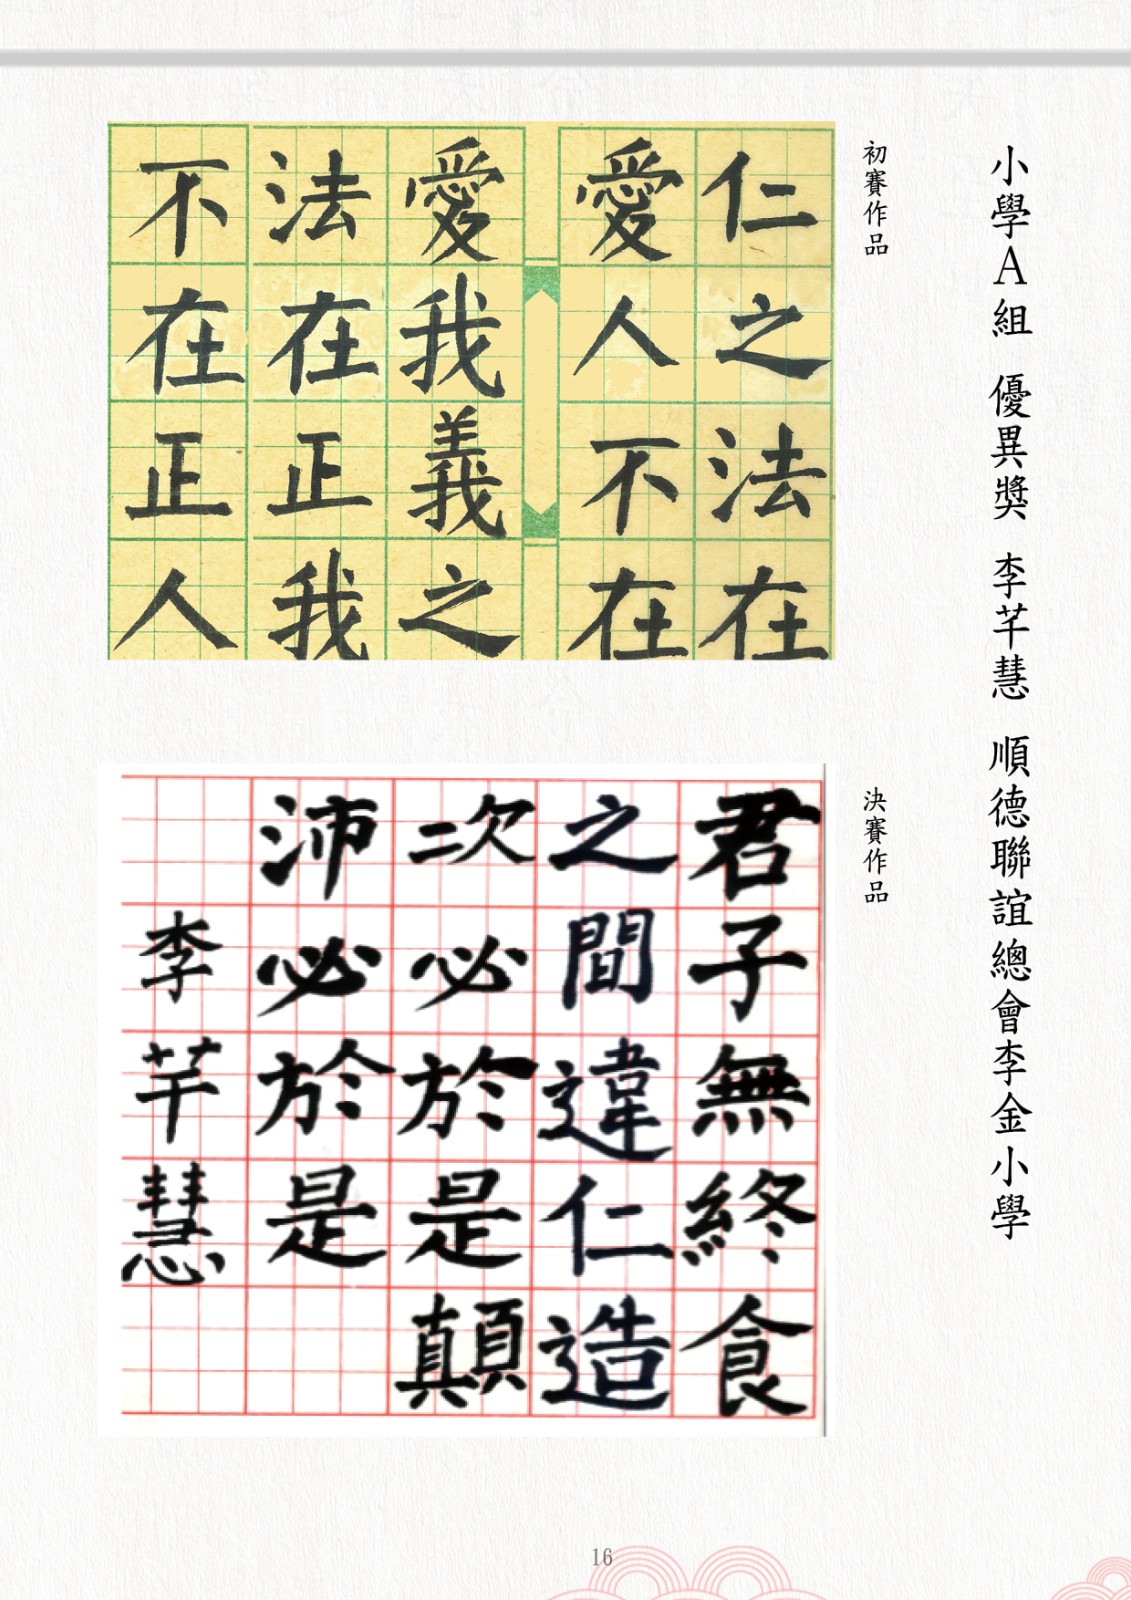 小學A組 優異獎 李芊慧 順德聯誼總會李金小學
初賽作品
仁之法在
愛人不在
愛我義之
法在正我
不在正人
決賽作品
君子無終食
之間違仁造
次必於是顛
沛必於是
李芊慧
16